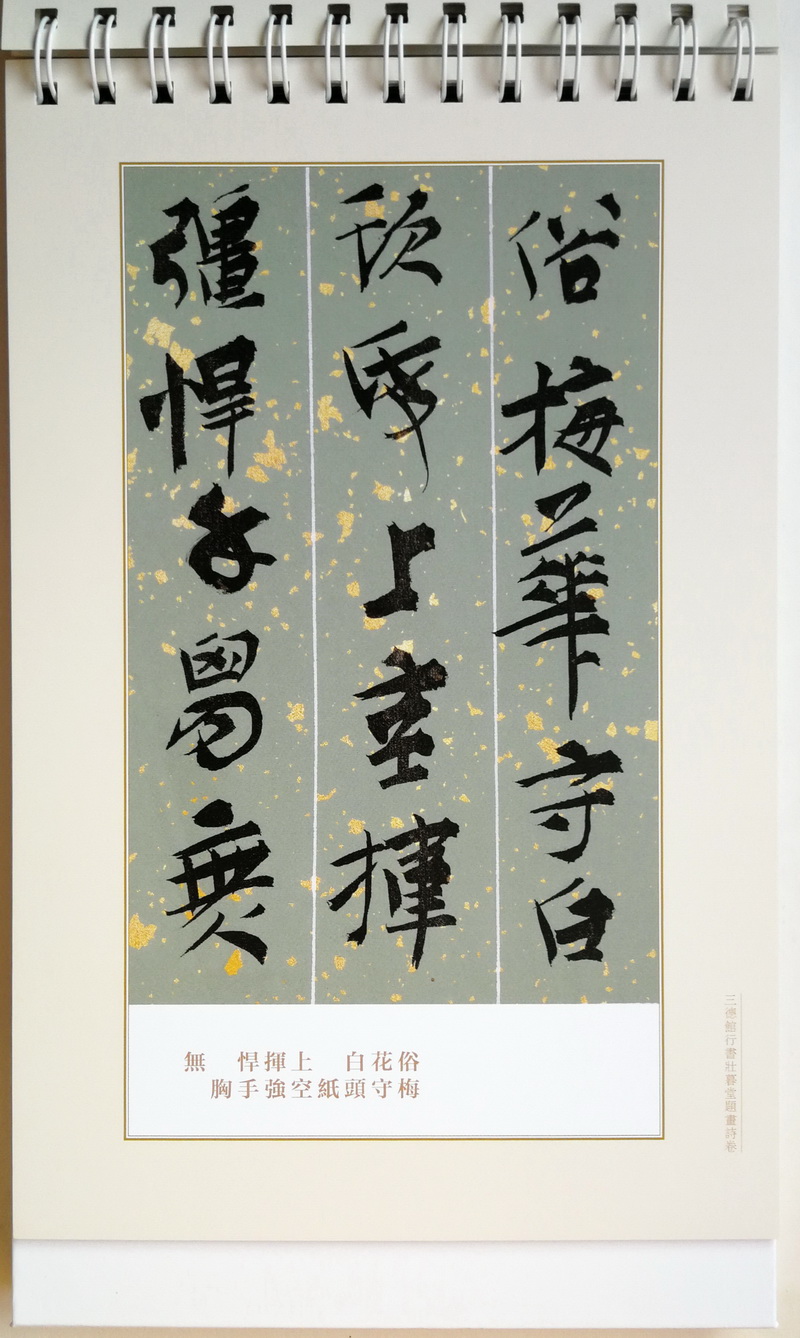 俗梅華守白
頭帋上空揮
彊悍手胷無
俗梅
花守
白頭
紙
上空
揮強
悍手
胸
無
三德館行書壯暮堂題畫詩卷